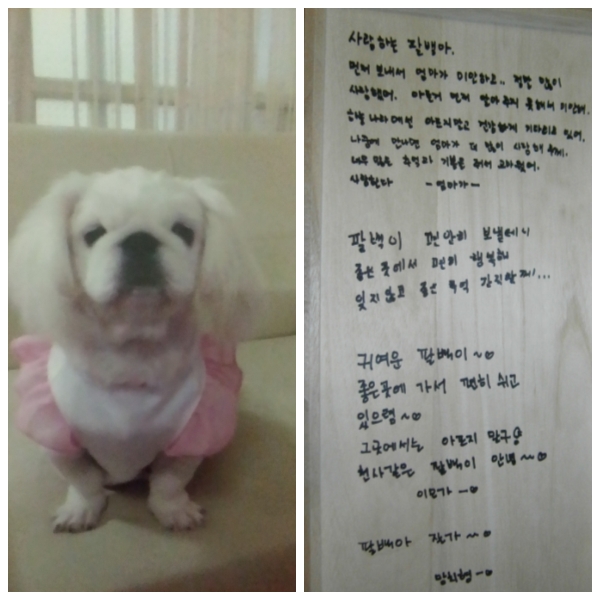 사랑하는 팔백아.
먼저 보내서 엄마가 미안하고.. 정말 많이
사랑했어. 아픈거 먼저 알아주지 못해서 미안해.
하늘나라에선 아프지말고 건강하게 기다리고 있어.
나중에 만나면 엄마가 더 많이 사랑해 줄께.
너무 많은 추억과 기쁨을 줘서 고마웠어.
사랑한다 -엄마가-
팔백이 편안히 보낼테니
좋은 곳에서 편히 행복해
잊지않고 좋은 추억 간직할께!...
귀여운 팔백이~♡
좋은곳에 가서 편히 쉬고
있으렴~♡
그곳에서는 아프지 말구
천사같은 팔백이 안녕~~♡
이모가-♡
팔백아 잘가~~♡
-♡